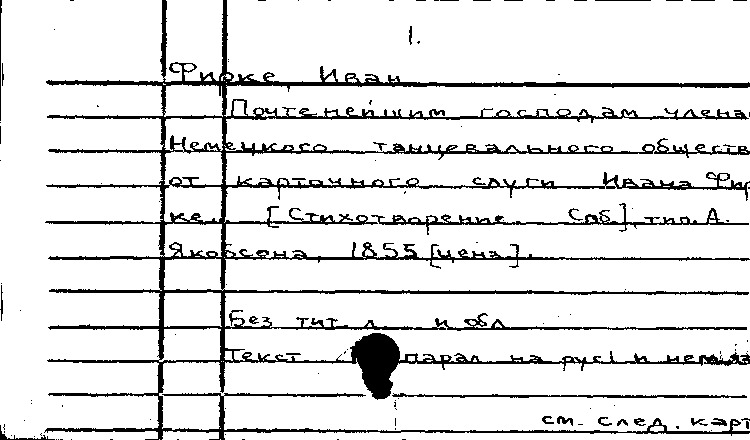 1.
Фирке, Иван
Почтенейшим господам члена
Немецкого танцевального обществ
от карточного слуги Ивана Фир
ке. [Стихотворение. Спб], тип. А.
Якобсона, 1855 [ценз].
Без тит. л. и обл
Текст парал на рус и нем. яз
см. след. карт